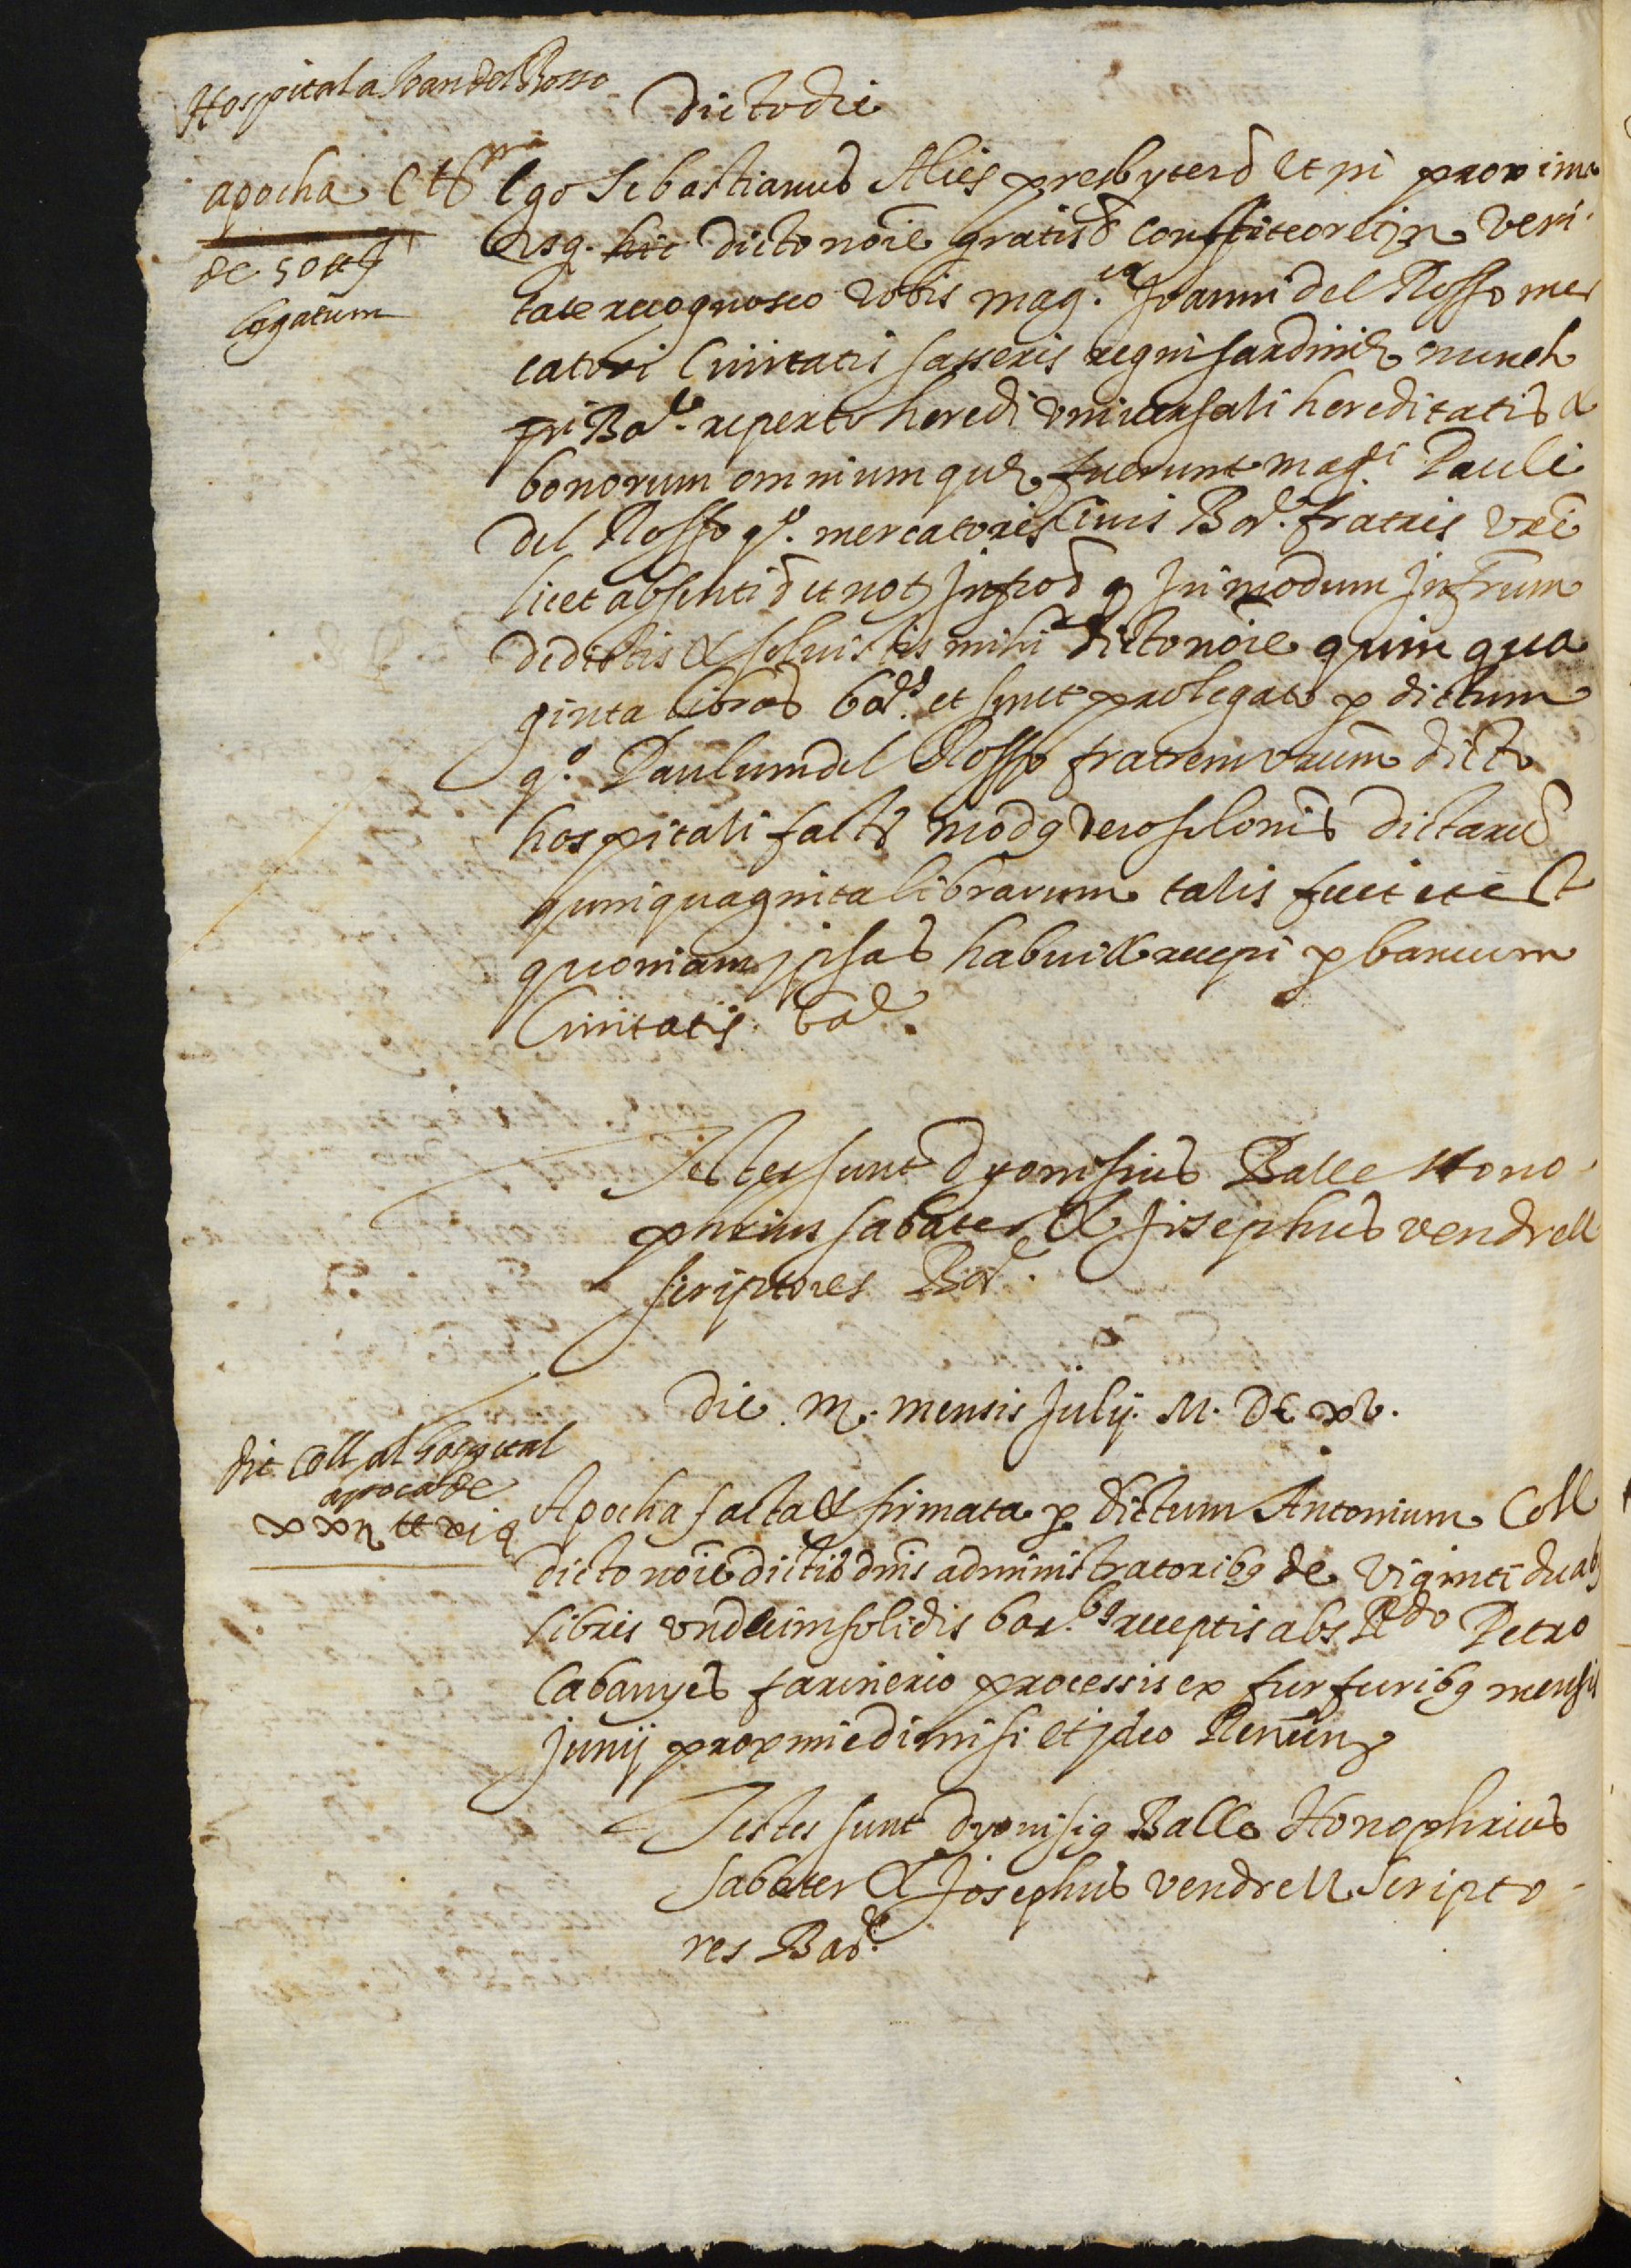 Hospital a Joan del Rosso
Dicto die
apocha
de 50 ₶
legatum
Ego Sebastianus Alies presbyter et pñ proxime
dicto noie gratis & confiteor et in veri
tate recognosco vobis mag.co Joanni del Rosso mer
catori Civitatis sasseris regni sardinie nunch
Bar. reperto heredi universali hereditatis &
bonorum omnium que fuerunt mag.ci Pauli
del Rosso q.o mercatoris Civis Bar. fratris vri
licet absenti et not infrod q in modum infrum
dedistis & solvistis mihi dicto noie quinqua
ginta libras bar. et sunt pro legato p dictum
q.o Paulum del Rosso fratrem vrum dicto
hospitali facto modq vero solonis dictaru
quinquaginta librarum talis fuit et est
quoniam ipsas habui & recepi p bancum
Civitatis bar.
Testes sunt dyonisius Balle Hono
phrius sabater & Josephus vendrell
scriptores Bar.
Die . m. mensis Julij. M. DC xv.
dit Coll al hospital
apoca de
xxij ₶ xi s
Apocha facta & firmata p dictum Antonium Coll
dicto noie dictis dnis administratoribq de viginti duabq
libris undecim solidis bar. receptis abs Rdo Petro
Cabanyes farinerio processis ex furfuribq mensis
Junij proxime dimissi et ideo Renun
Testes sunt dyonisiq Balle Honophrius
sabater & Josephus vendrell Scripto
res Bar.